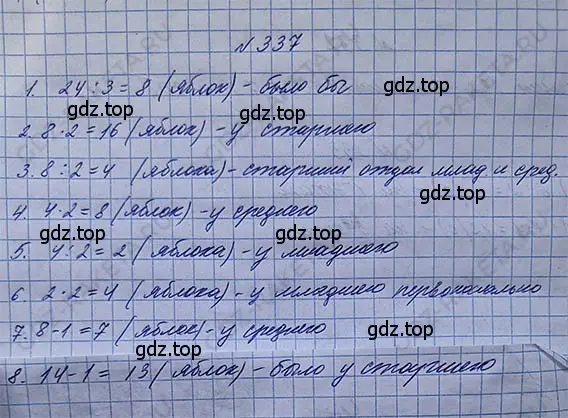 №337
1. 24:3=8 (яблок) - было бы
gdz.top gdz.top
2. 8·2=16 (яблок) - у старшего
gdz.top gdz.top
3. 8:2=4 (яблока) - старший отдал млад и сред.
gdz.top gdz.top
4. 4·2=8 (яблок) - у среднего
gdz.top gdz.top
5. 4:2=2 (яблока) - у младшего
gdz.top gdz.top
6. 2·2=4 (яблока) - у младшего первоначально
gdz.top gdz.top
7. 8-1=7 (яблок) - у среднего
gdz.top gdz.top
8. 14-1=13 (яблок) - было у старшего